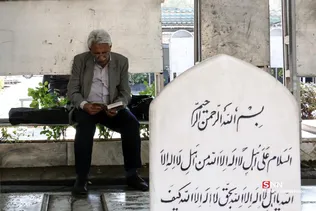 بسم الله الرحمن الرحیم
السلام علی اهل لا اله الا الله من اهل لا اله الا
الله یا اهل لا اله الا الله بحق لا اله الا الله کیف